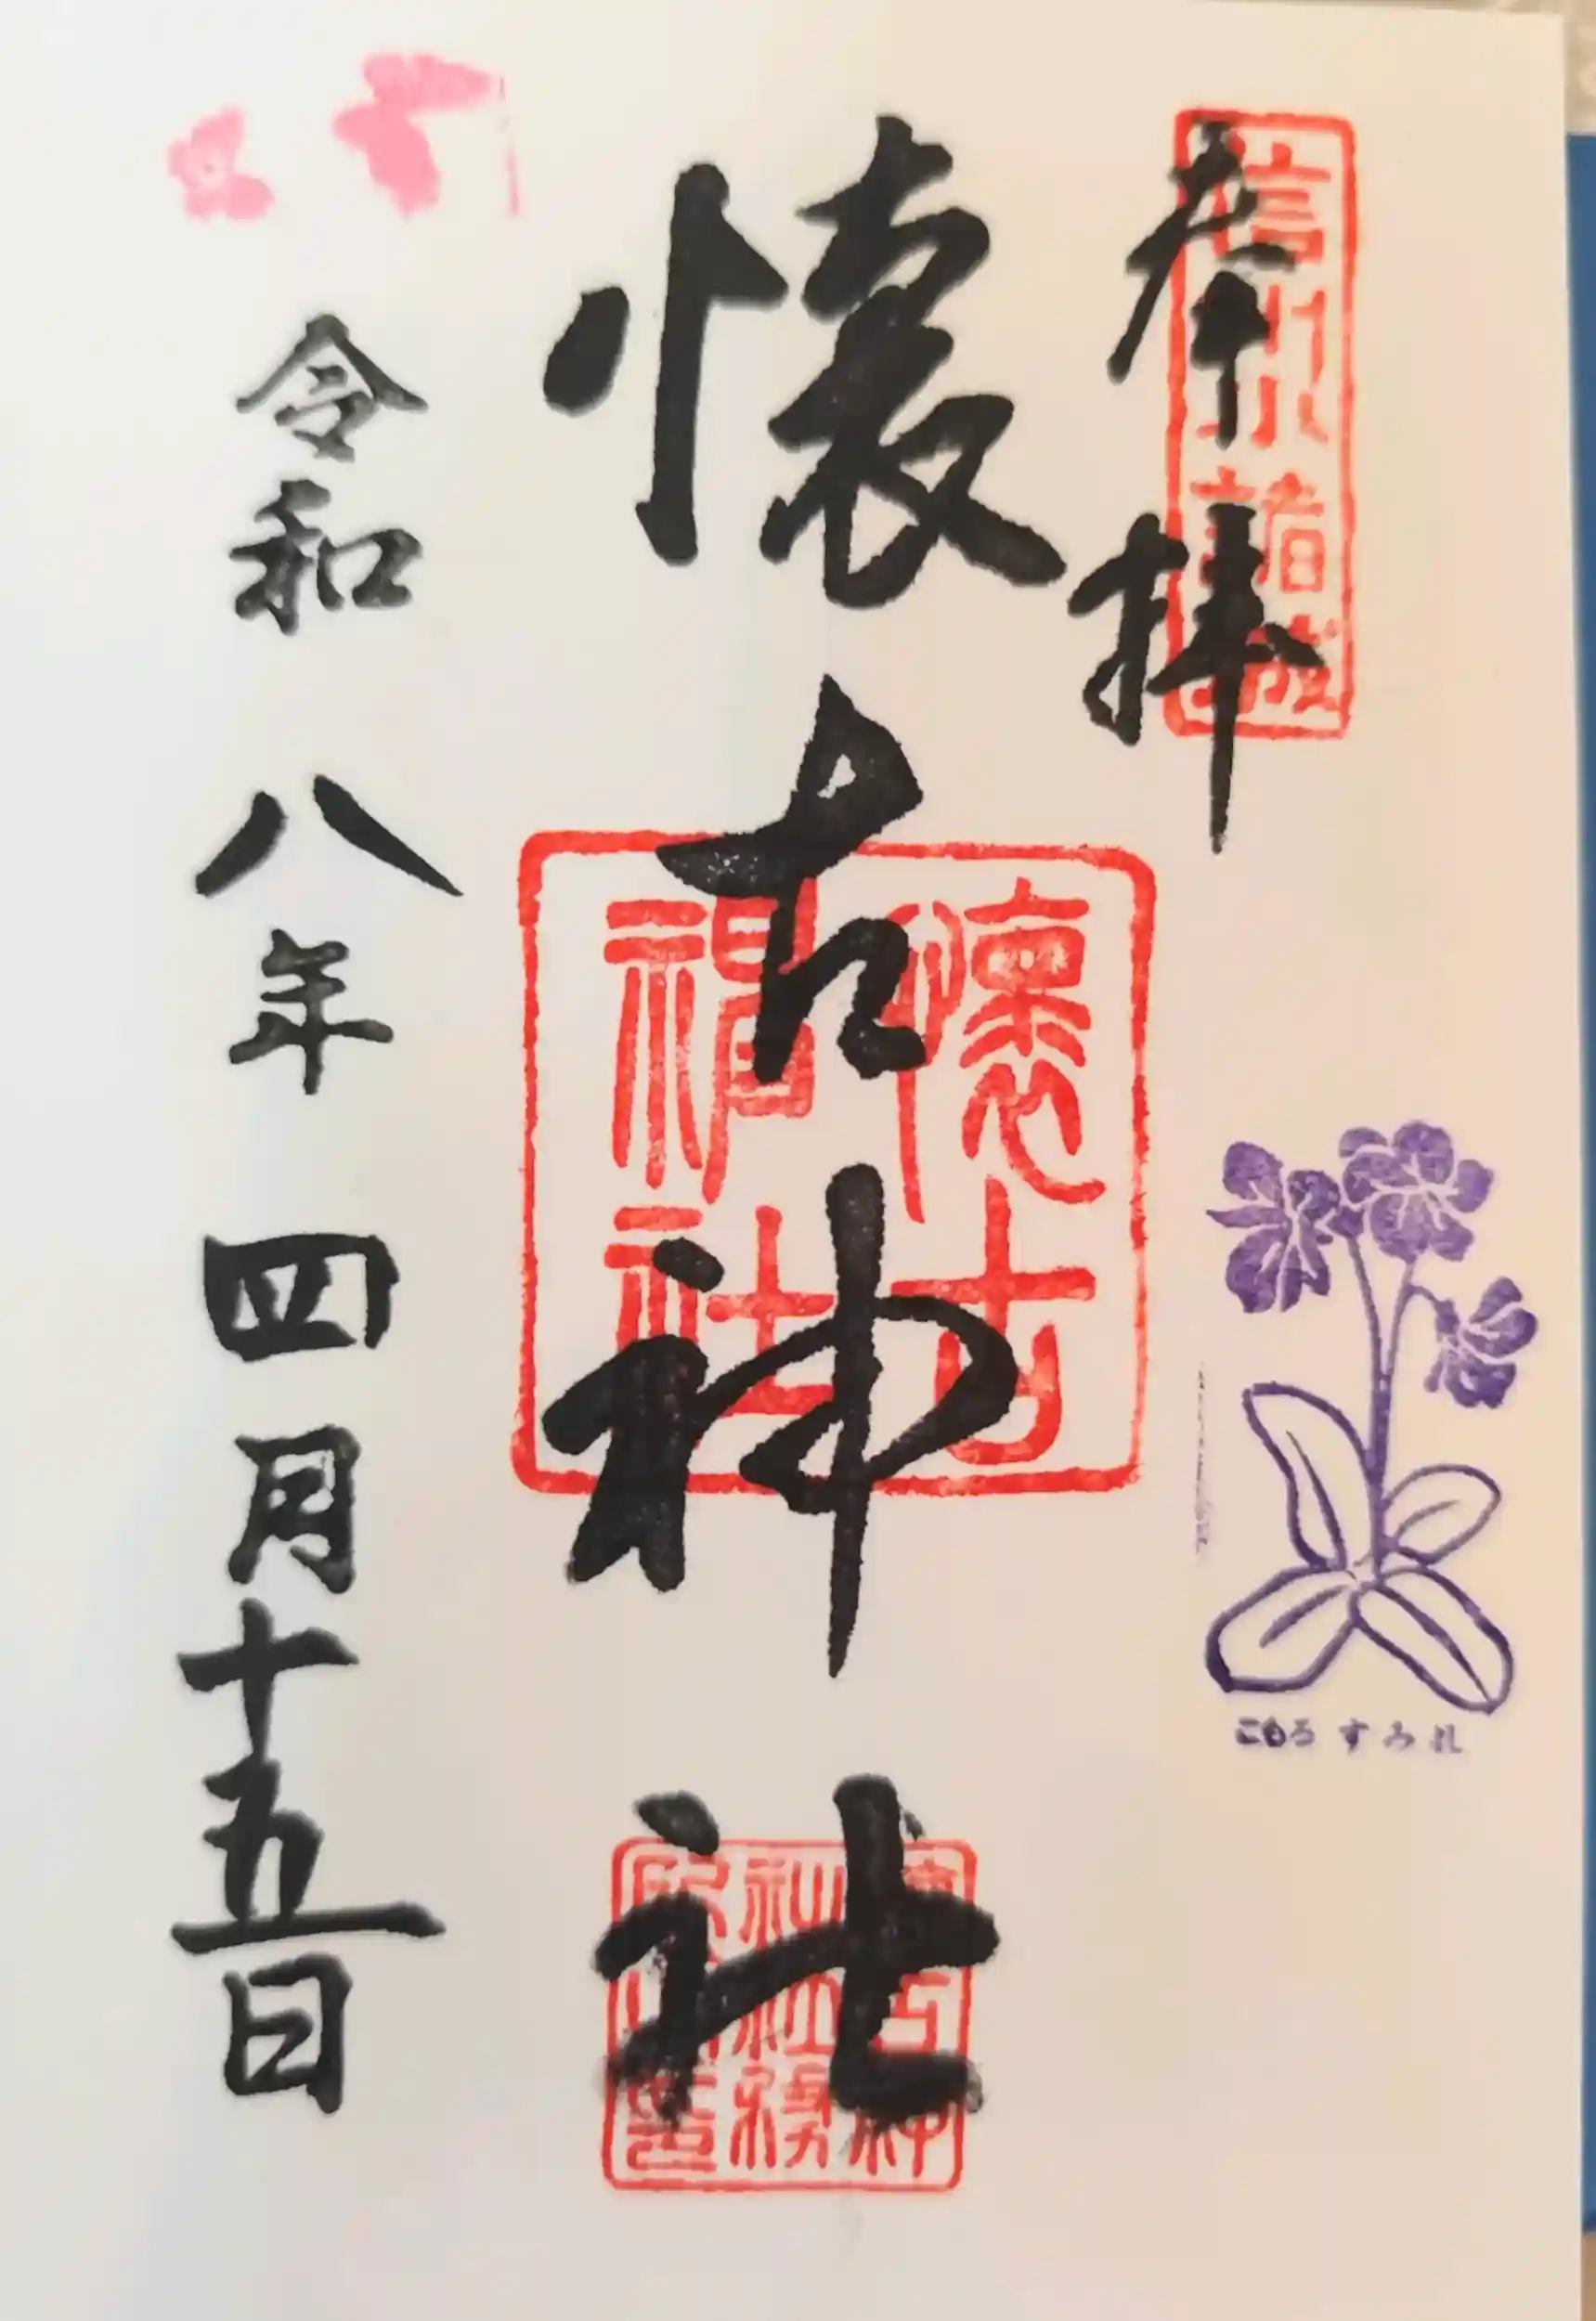 奉拝
信州小諸城
こもろすみれ
懐古神社
懐古神社
令和八年四月十五日